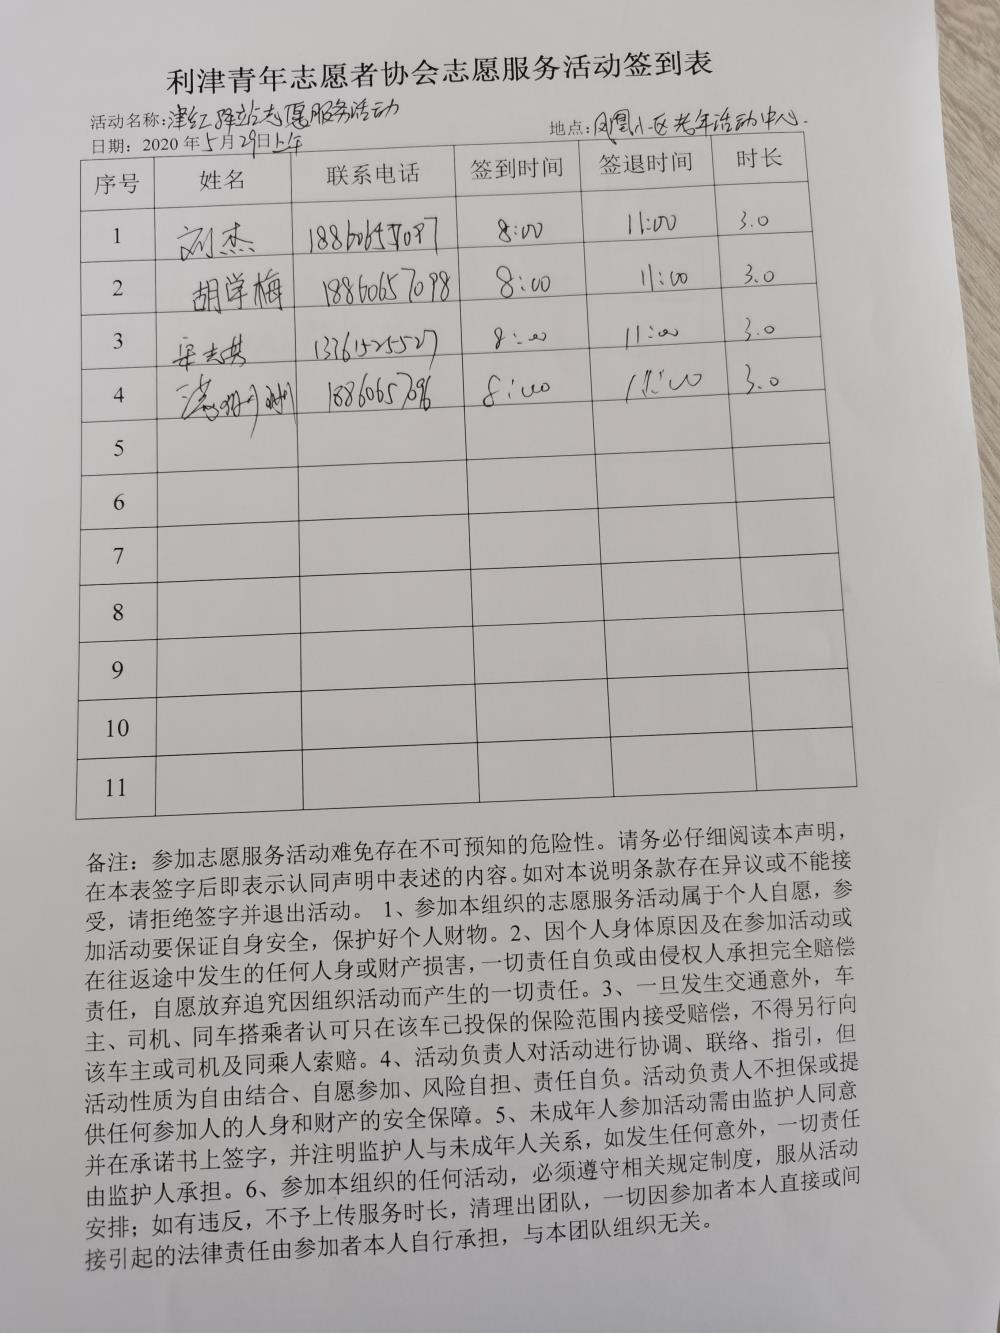 利津青年志愿者协会志愿服务活动签到表
活动名称:津红驿站志愿服务活动 地点:凤凰小区老年活动中心.
日期: 2020年5月29日上午
序号 姓名 联系电话 签到时间 签退时间 时长
1 刘杰 8:00 11:00 3.0
2 胡学梅 18860657098 8:00 11:00 3.0
3 13761525527 8:00 11:00 3.0
4 18860657096 8:00 11:00 3.0
5
6
7
8
9
10
11
备注: 参加志愿服务活动难免存在不可预知的危险性。请务必仔细阅读本声明,
在本表签字后即表示认同声明中表述的内容。如对本说明条款存在异议或不能接
受，请拒绝签字并退出活动。 1、参加本组织的志愿服务活动属于个人自愿，参
加活动要保证自身安全，保护好个人财物。2、因个人身体原因及在参加活动或
在往返途中发生的任何人身或财产损害，一切责任自负或由侵权人承担完全赔偿
责任，自愿放弃追究因组织活动而产生的一切责任。3、一旦发生交通意外，车
主、司机、同车搭乘者认可只在该车已投保的保险范围内接受赔偿，不得另行向
该车主或司机及同乘人索赔。4、活动负责人对活动进行协调、联络、指引，但
活动性质为自由结合、自愿参加、风险自担、责任自负。活动负责人不担保或提
供任何参加人的人身和财产的安全保障。5、未成年人参加活动需由监护人同意
并在承诺书上签字，并注明监护人与未成年人关系，如发生任何意外，一切责任
由监护人承担。6、参加本组织的任何活动，必须遵守相关规定制度，服从活动
安排；如有违反，不予上传服务时长，清理出团队，一切因参加者本人直接或间
接引起的法律责任由参加者本人自行承担，与本团队组织无关。